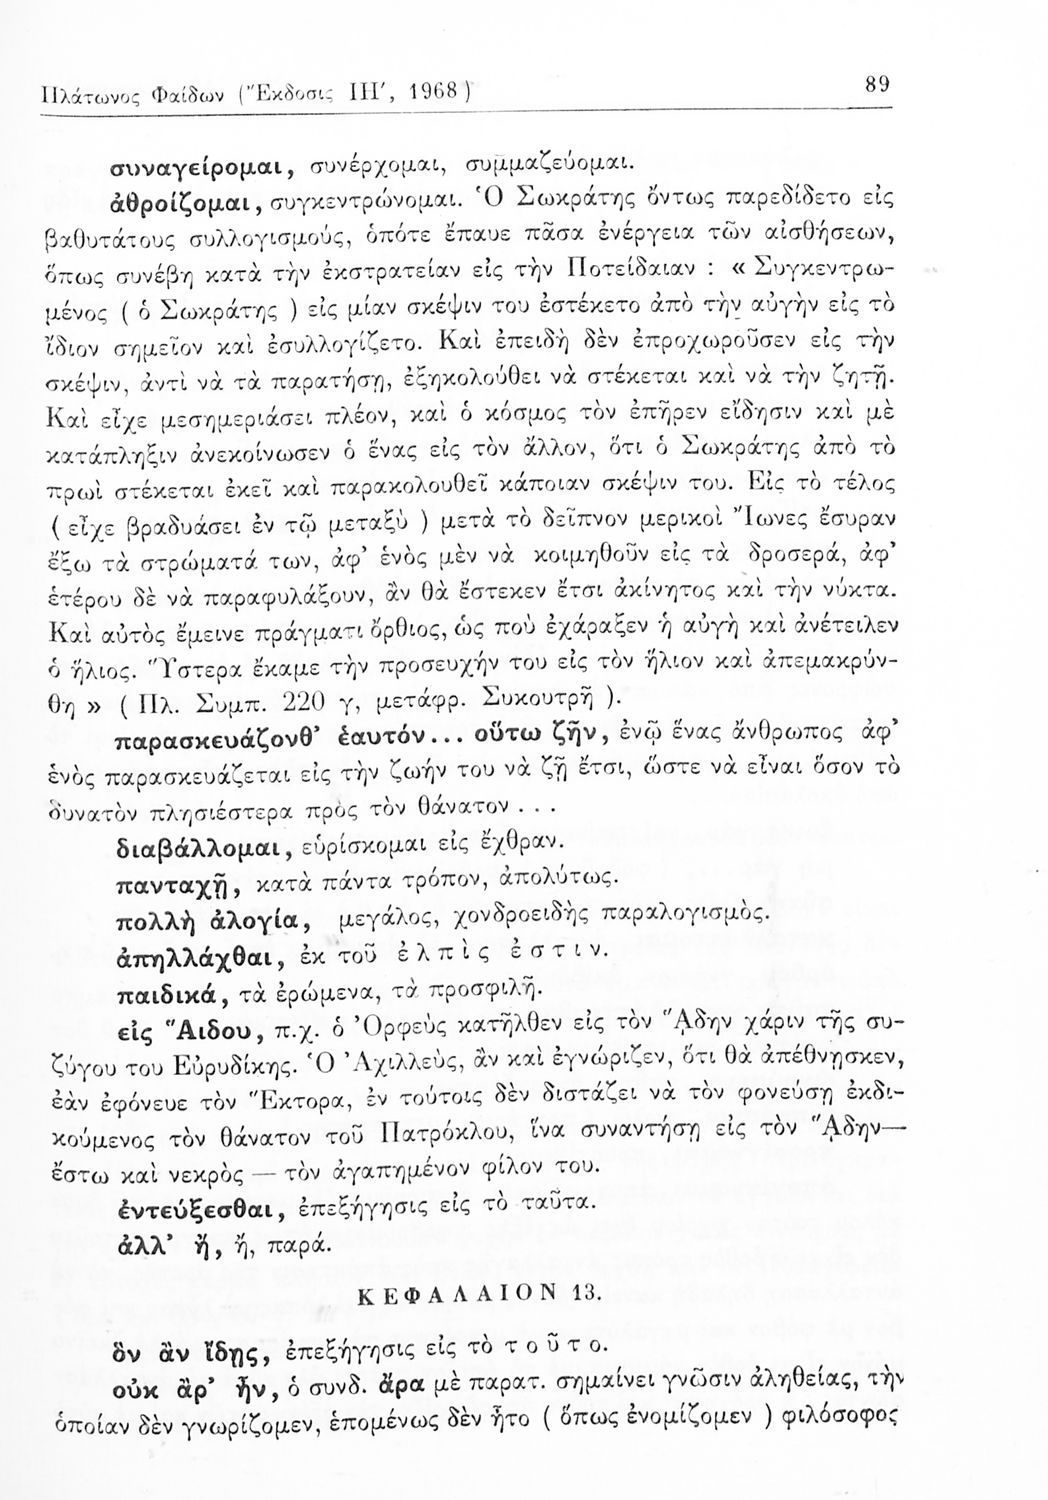 Πλάτωνος Φαίδων (Ἔκδοσις ΙΗ', 1968) 89
συναγείρομαι, συνέρχομαι, συμμαζεύομαι.
ἀθροίζομαι, συγκεντρώνομαι. Ὁ Σωκράτης ὄντως παρεδίδετο εἰς
βαθυτάτους συλλογισμούς, ὁπότε ἔπαυε πᾶσα ἐνέργεια τῶν αἰσθήσεων,
ὅπως συνέβη κατὰ τὴν ἐκστρατείαν εἰς τὴν Ποτείδαιαν : « Συγκεντρω-
μένος ( ὁ Σωκράτης ) εἰς μίαν σκέψιν του ἐστέκετο ἀπὸ τὴν αὐγὴν εἰς τὸ
ἴδιον σημεῖον καὶ ἐσυλλογίζετο. Καὶ ἐπειδὴ δὲν ἐπροχωροῦσεν εἰς τὴν
σκέψιν, ἀντὶ νὰ τὰ παρατήσῃ, ἐξηκολούθει νὰ στέκεται καὶ νὰ τὴν ζητῇ.
Καὶ εἶχε μεσημεριάσει πλέον, καὶ ὁ κόσμος τὸν ἐπῆρεν εἴδησιν καὶ μὲ
κατάπληξιν ἀνεκοίνωσεν ὁ ἕνας εἰς τὸν ἄλλον, ὅτι ὁ Σωκράτης ἀπὸ τὸ
πρωὶ στέκεται ἐκεῖ καὶ παρακολουθεῖ κάποιαν σκέψιν του. Εἰς τὸ τέλος
( εἶχε βραδυάσει ἐν τῷ μεταξὺ ) μετὰ τὸ δεῖπνον μερικοὶ Ἴωνες ἔσυραν
ἔξω τὰ στρώματά των, ἀφ' ἑνὸς μὲν νὰ κοιμηθοῦν εἰς τὰ δροσερά, ἀφ'
ἑτέρου δὲ νὰ παραφυλάξουν, ἂν θὰ ἔστεκεν ἔτσι ἀκίνητος καὶ τὴν νύκτα.
Καὶ αὐτὸς ἔμεινε πράγματι ὄρθιος, ὡς ποὺ ἐχάραξεν ἡ αὐγὴ καὶ ἀνέτειλεν
ὁ ἥλιος. Ὕστερα ἔκαμε τὴν προσευχήν του εἰς τὸν ἥλιον καὶ ἀπεμακρύν-
θη » ( Πλ. Συμπ. 220 γ, μετάφρ. Συκουτρῆ ).
παρασκευάζονθ' ἑαυτόν... οὕτω ζῆν, ἐνῷ ἕνας ἄνθρωπος ἀφ'
ἑνὸς παρασκευάζεται εἰς τὴν ζωήν του νὰ ζῇ ἔτσι, ὥστε νὰ εἶναι ὅσον τὸ
δυνατὸν πλησιέστερα πρὸς τὸν θάνατον . . .
διαβάλλομαι, εὑρίσκομαι εἰς ἔχθραν.
πανταχῇ, κατὰ πάντα τρόπον, ἀπολύτως.
πολλὴ ἀλογία, μεγάλος, χονδροειδὴς παραλογισμὸς.
ἀπηλλάχθαι, ἐκ τοῦ ἐ λ π ὶ ς ἐ σ τ ι ν.
παιδικά, τὰ ἐρώμενα, τὰ προσφιλῆ.
εἰς Ἅιδου, π.χ. ὁ Ὀρφεὺς κατῆλθεν εἰς τὸν ᾍδην χάριν τῆς συ-
ζύγου του Εὐρυδίκης. Ὁ Ἀχιλλεύς, ἂν καὶ ἐγνώριζεν, ὅτι θὰ ἀπέθνησκεν,
ἐὰν ἐφόνευε τὸν Ἕκτορα, ἐν τούτοις δὲν διστάζει νὰ τὸν φονεύσῃ ἐκδι-
κούμενος τὸν θάνατον τοῦ Πατρόκλου, ἵνα συναντήσῃ εἰς τὸν ᾍδην—
ἔστω καὶ νεκρὸς — τὸν ἀγαπημένον φίλον του.
ἐντεύξεσθαι, ἐπεξήγησις εἰς τὸ ταῦτα.
ἀλλ' ἤ, ἤ, παρά.
ΚΕΦΑΛΑΙΟΝ 13.
ὃν ἂν ἴδῃς, ἐπεξήγησις εἰς τὸ τ ο ῦ τ ο.
οὐκ ἄρ' ἦν, ὁ συνδ. ἄρα μὲ παρατ. σημαίνει γνῶσιν ἀληθείας, τὴν
ὁποίαν δὲν γνωρίζομεν, ἑπομένως δὲν ἦτο ( ὅπως ἐνομίζομεν ) φιλόσοφος